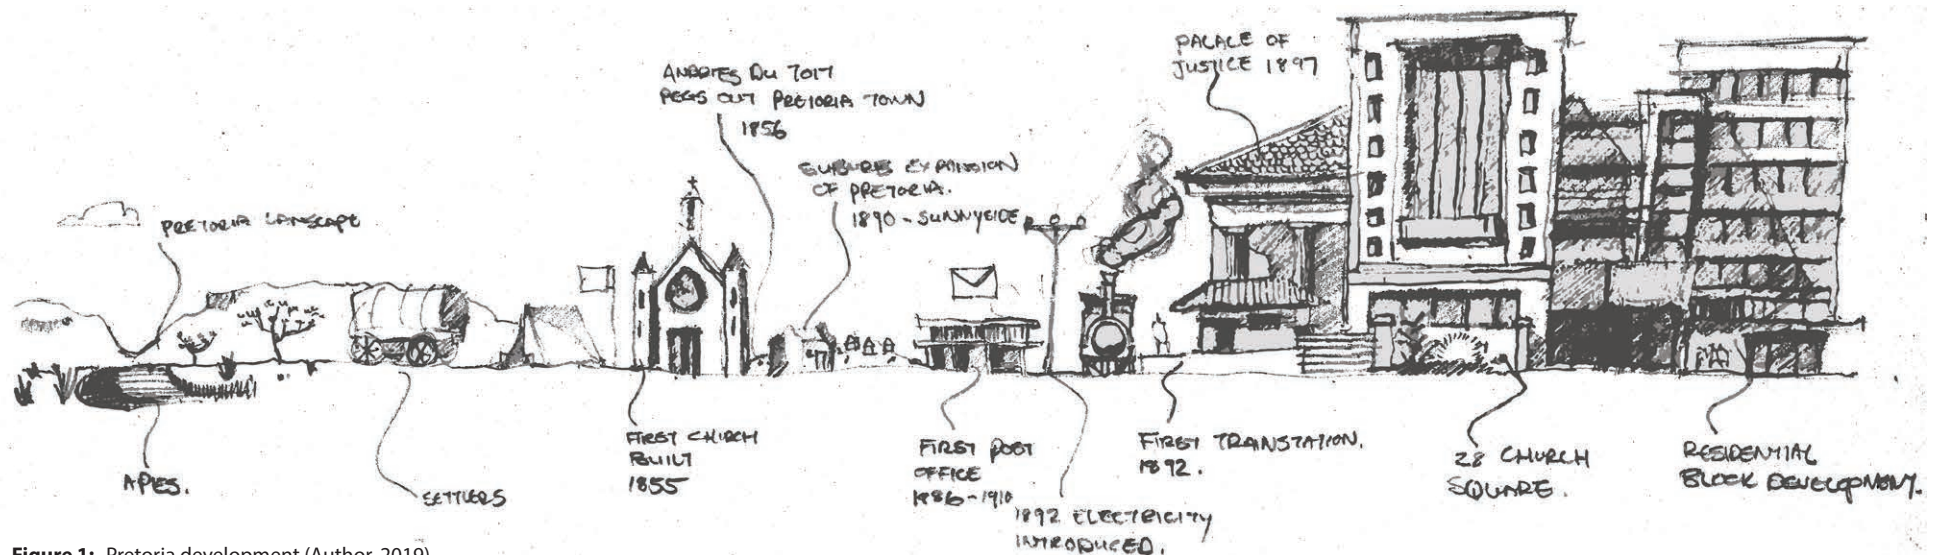 PALACE OF
JUSTICE 1897
ANDRIES DU TOIT
PEGS OUT PRETORIA TOWN
1856
SUBURBS EXPANSION
OF PRETORIA.
1890 - SUNNYSIDE
PRETORIA LANSCAPE
APIES.
SETTLERS
FIRST CHURCH
BUILT
1855
FIRST POST
OFFICE
1886-1910
1892 ELECTRICITY
INTRODUCED.
FIRST TRAINSTATION.
1892.
28 CHURCH
SQUARE.
RESIDENTIAL
BLOCK DEVELOPMENT.
Figure 1: Pretoria development (Author, 2019)